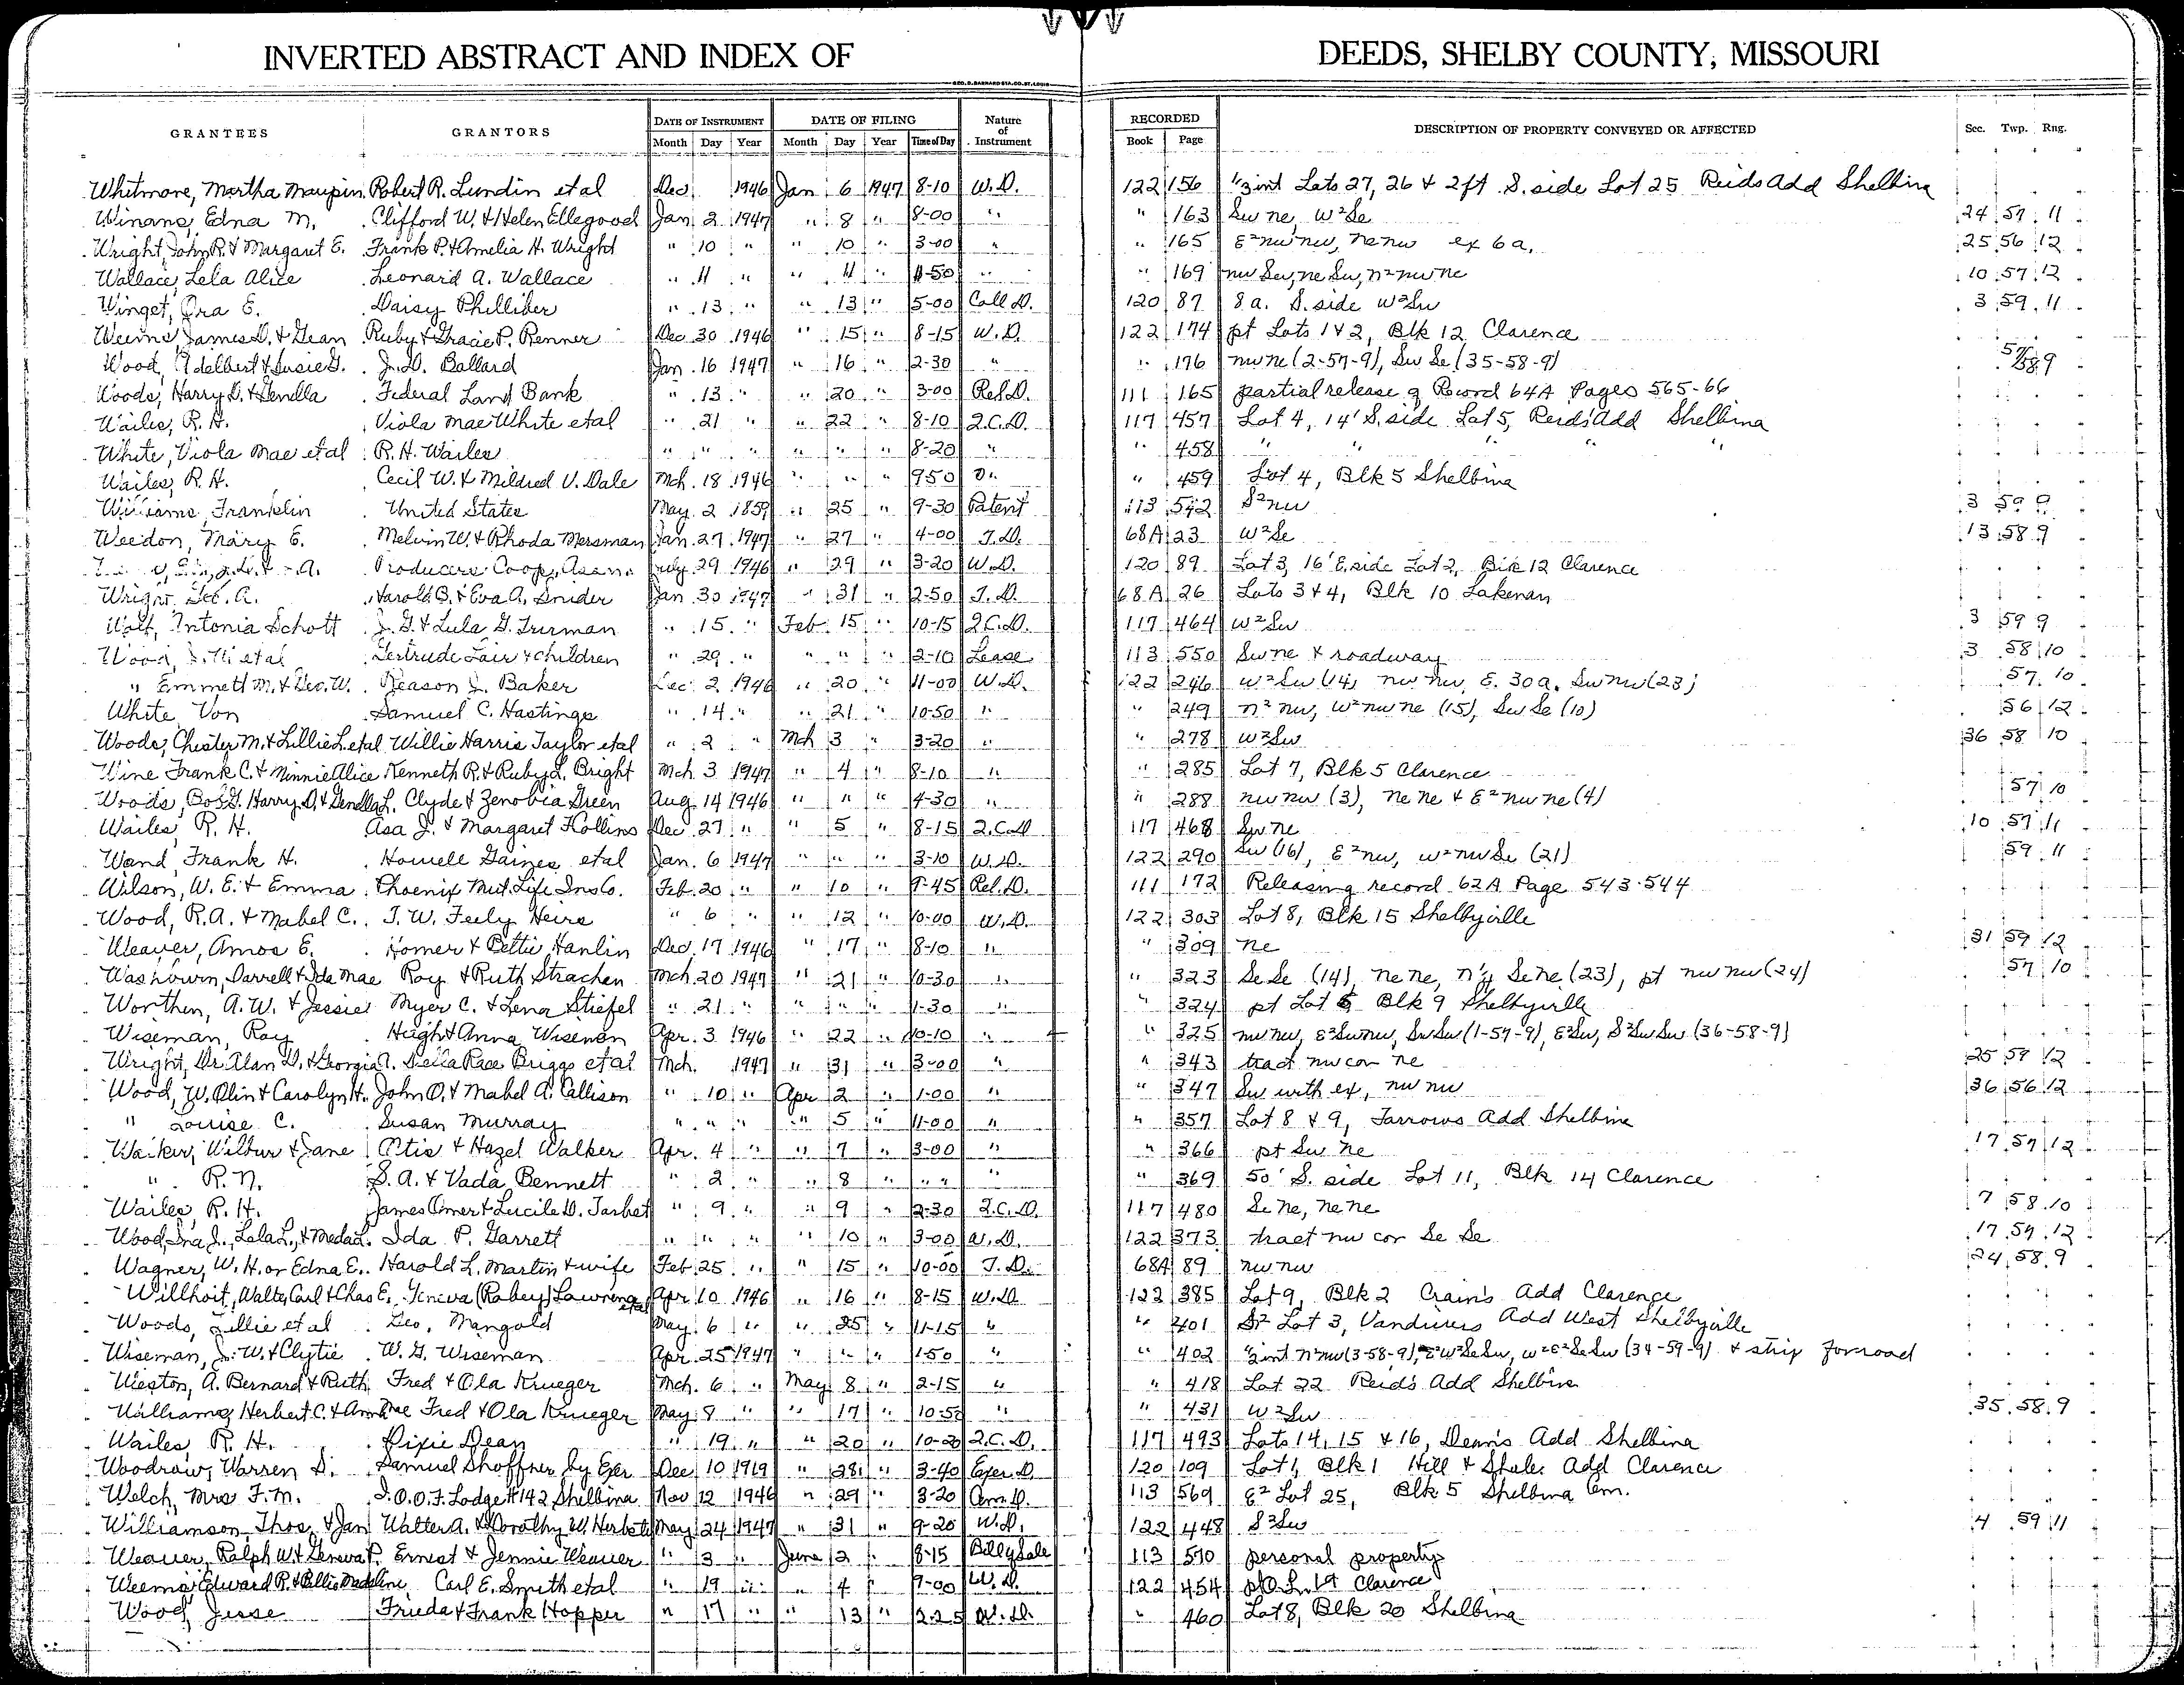 INVERTED ABSTRACT AND INDEX OF DEEDS, SHELBY COUNTY, MISSOURI
GEO. D. BARNARD STA. CO. ST. LOUIS
GRANTEES GRANTORS DATE OF INSTRUMENT DATE OF FILING Nature of Instrument RECORDED DESCRIPTION OF PROPERTY CONVEYED OR AFFECTED Sec. Twp. Rng.
Month Day Year Month Day Year Time of Day Book Page
Whitmore, Martha Maupin Robert R. Lundin et al Dec 1946 Jan 6 1947 8-10 W.D. 122 156 int Lots 27, 26 & 2ft S. side Lot 25 Reids Add Shelbina
Winans, Edna M. Clifford W. & Helen Ellegood Jan 2 1947 " 8 " 8-00 " " 163 Sw ne, W²Se 24 57 11
Wright, John R. & Margaret E. Frank P. & Amelia H. Wright " 10 " " 10 " 3-00 " " 165 E²nw nw, ne nw ex 6a. 25 56 12
Wallace, Lela Alice Leonard A. Wallace " 11 " " 11 " 11-50 " " 169 nw Sw, ne Sw, n²nw ne 10 57 12
Winget, Ora E. Daisy Philliber " 13 " " 13 " 5-00 Coll D. 120 87 8 a. S. side W²Sw 3 59 11
Weems James D. & Jean Ruby & Gracie P. Renner Dec 30 1946 " 15 " 8-15 W.D. 122 174 pt Lots 1 & 2, Blk 12 Clarence
Wood, Adelbert & Susie G. J.D. Ballard Jan 16 1947 " 16 " 2-30 " " 176 nw ne (2-57-9), Sw Se (35-58-9) 57 58 9
Woods, Harry D. & Gendla Federal Land Bank " 13 " " 20 " 3-00 Rel D. 111 165 partial release of Record 64A Pages 565-66
Wailes, R. H. Viola Mae White et al " 21 " " 22 " 8-10 2.C.D. 117 457 Lot 4, 14' S. side Lot 5, Reids Add Shelbina
White, Viola Mae et al R. H. Wailes " " " " " " 8-20 " " 458 " " " "
Wailes, R. H. Cecil W. & Mildred V. Dale Mch 18 1946 " " " 9 50 " " 459 Lot 4, Blk 5 Shelbina
Williams, Franklin United States May 2 1859 " 25 " 9-30 Patent 113 542 S²nw 3 59 9
Weedon, Mary E. Melvin W. & Rhoda Mersman Jan 27 1947 " 27 " 4-00 T.D. 68A 23 W²Se 13 58 9
A. Producers Coop. Assn. July 29 1946 " 29 " 3-20 W.D. 120 89 Lot 3, 16' E. side Lot 2, Blk 12 Clarence
Wright, Geo. A. Harold B. & Eva A. Snider Jan 30 1947 " 31 " 2-50 T.D. 68A 26 Lots 3 & 4, Blk 10 Lakenan
Wolf, Antonia Schott J. G. & Lula G. Turman " 15 " Feb 15 " 10-15 2.C.D. 117 464 W²Sw 3 59 9
Wood, et al Gertrude Lair & children " 29 " " " " 2-10 Lease 113 550 Sw ne & roadway 3 58 10
" Emmett M. & Geo. W. Reason J. Baker Dec 2 1946 " 20 " 11-00 W.D. 122 246 W²Sw (14), nw nw, E. 30a. Sw nw (23) 57 10
White, Von Samuel C. Hastings " 14 " " 21 " 10-50 " " 249 n² nw, W²nw ne (15), Sw Se (10) 56 12
Woods, Chester M. & Lillie L. et al Willie Harris Taylor et al " 2 " Mch 3 " 3-20 " " 278 W²Sw 36 58 10
Wine Frank C. & Minnie Alice Kenneth R. & Ruby L. Bright Mch 3 1947 " 4 " 8-10 " " 285 Lot 7, Blk 5 Clarence
Woods, Bob G. Harry D. & Gendla L. Clyde & Zenobia Green Aug 14 1946 " " " 4-30 " " 288 nw nw (3), ne ne & E²nw ne (4) 57 10
Wailes, R. H. Asa J. & Margaret Hollins Dec 27 " " 5 " 8-15 2.C.D 117 468 Sw ne 10 57 11
Wand, Frank H. Howell Gaines et al Jan. 6 1947 " " " 3-10 W.D. 122 290 Sw (16), E²nw, W²nw Se (21) 59 11
Wilson, W. E. & Emma Phoenix Mut. Life Ins Co. Feb. 20 " " 10 " 9-45 Rel. D. 111 172 Releasing record 62A Page 543-544
Wood, R.A. & Mabel C. T. W. Feely Heirs " 6 " " 12 " 10-00 W.D. 122 303 Lot 8, Blk 15 Shelbyville
Weaver, Amos E. Homer & Bettie Hanlin Dec 17 1946 " 17 " 8-10 " " 309 ne 31 59 12
Washburn, Darrell & Ida Mae Roy & Ruth Strachen Mch 20 1947 " 21 " 10-30 " " 323 Se Se (14), ne ne, n½ Se ne (23), pt nw nw (24) 57 10
Worthen, A.W. & Jessie Myer C. & Lena Stiefel " 21 " " " " 1-30 " " 324 pt Lot Blk 9 Shelbyville
Wiseman, Roy Hugh & Anna Wiseman Apr. 3 1946 " 22 " 10-10 " " 325 nw nw, E²Sw nw, Sw Sw (1-57-9), E²Sw, S²Sw Sw (36-58-9)
Wright, Dr. Alan D. & Georgia A. Della Race Briggs et al Mch. 1947 " 31 " 3-00 " " 343 tract nw cor ne 25 57 12
Wood, W. Olin & Carolyn H. John O. & Mabel A. Callison " 10 " Apr 2 " 1-00 " " 347 Sw with ex, nw nw 36 56 12
" Louise C. Susan Murray " " " " 5 " 11-00 " " 357 Lot 8 & 9, Farrows Add Shelbina
Walker, Wilbur & Jane Otis & Hazel Walker Apr. 4 " " 7 " 3-00 " " 366 pt Sw ne 17 57 12
" R. N. S. A. & Vada Bennett " 2 " " 8 " " " " 369 50' S. side Lot 11, Blk 14 Clarence
Wailes, R. H. James Omer & Lucile D. Tarbet " 9 " " 9 " 2-30 2.C.D. 117 480 Se ne, ne ne 7 58 10
Wood, Ira J., Lela L., & Meda L. Ida P. Garrett " " " " 10 " 3-00 W.D. 122 373 tract nw cor Se Se 17 57 12
Wagner, W. H. or Edna E. Harold L. Martin & wife Feb 25 " " 15 " 10-00 T.D. 68A 89 nw nw 24 58 9
Willhoit, Walter Carl & Chas E. Geneva (Robey) Lawrence et al Apr 10 1946 " 16 " 8-15 W.D 122 385 Lot 9, Blk 2 Crain's Add Clarence
Woods, Lillie et al Geo. Mangold May 6 " " 25 " 11-15 " " 401 S² Lot 3, Vandivers Add West Shelbyville
Wiseman, J. W. & Clytie W. G. Wiseman Apr. 25 1947 " " " 1-50 " " 402 int n²nw (3-58-9), E²W²Se Sw, W²E²Se Sw (34-59-9) & strip for road
Weston, A. Bernard & Ruth Fred & Ola Krueger Mch. 6 " May 8 " 2-15 " " 418 Lot 22 Reids Add Shelbina
Williams, Herbert C. & Anna Mae Fred & Ola Krueger May 8 " " 17 " 10-50 " " 431 W²Sw 35 58 9
Wailes, R. H. Dixie Dean " 19 " " 20 " 10-20 2.C.D. 117 493 Lots 14, 15 & 16, Dean's Add Shelbina
Woodrow, Warren D. Samuel Shoffner by Exer Dec 10 1919 " 28 " 3-40 Exer D. 120 109 Lot 1, Blk 1 Hill & Add Clarence
Welch, Mrs F. M. I.O.O.F. Lodge #142 Shelbina Nov 12 1946 " 29 " 3-20 Cem. D. 113 569 E² Lot 25, Blk 5 Shelbina Cem.
Williamson, Thos. & Jan Walter A. & Dorothy W. May 24 1947 " 31 " 9-20 W.D. 122 448 S²Sw 4 59 11
Weaver, Ralph W. & Geneva P. Ernest & Jennie Weaver " 3 " June 2 " 8-15 Bill of Sale 113 570 personal property
Weems Edward R. & Billie Madeline Carl E. Smith et al " 19 " " 4 " 9-00 W.D. 122 454 pt O.L. 19 Clarence
Wood, Jesse Frieda & Frank Hopper " 17 " " 13 " 2-25 W.D. " 460 Lot 8, Blk 20 Shelbina